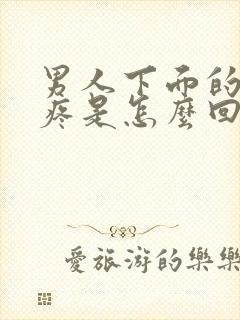 男人下面的
疼是怎麼回
愛旅游的樂樂